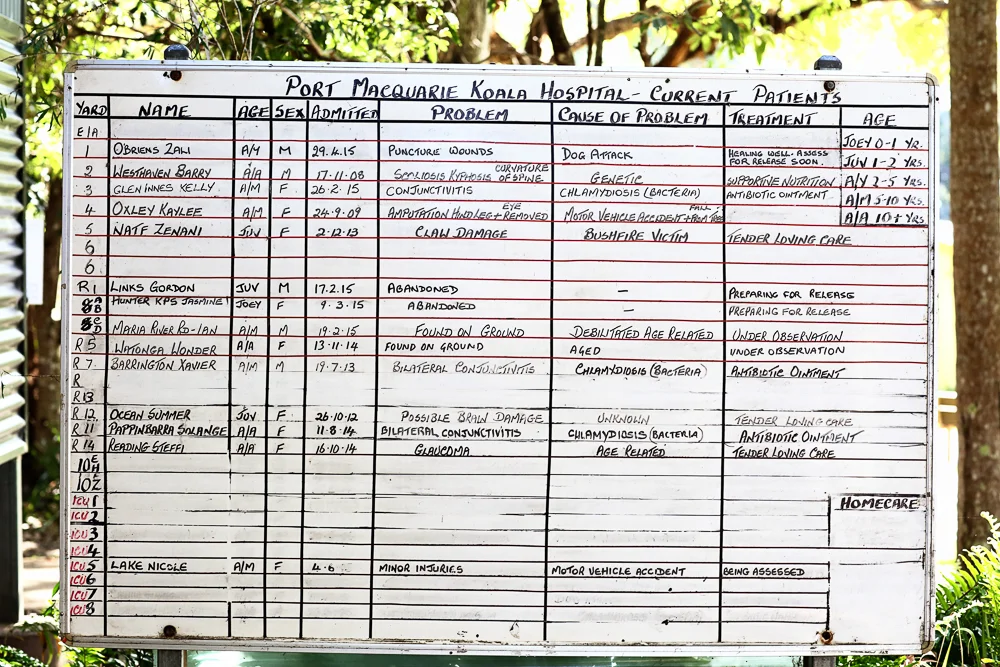 PORT MACQUARIE KOALA HOSPITAL - CURRENT PATIENTS
YARD NAME AGE SEX ADMITTED PROBLEM CAUSE OF PROBLEM TREATMENT AGE
E1A
JOEY 0-1 YR.
1 OBRIENS ZALI A/Y M 29.4.15 PUNCTURE WOUNDS DOG ATTACK HEALING WELL. ASSESS FOR RELEASE SOON
JUV 1-2 YRS.
2 WESTHAVEN BARRY A/A M 17.11.08 SCOLIOSIS KYPHOSIS CURVATURE OF SPINE GENETIC SUPPORTIVE NUTRITION
A/Y 2-5 YRS.
3 GLEN INNES KELLY A/M F 26.2.15 CONJUNCTIVITIS CHLAMYDIOSIS (BACTERIA) ANTIBIOTIC OINTMENT
A/M 5-10 YRS.
4 OXLEY KAYLEE A/M F 24.9.09 AMPUTATION HIND LEG + EYE REMOVED MOTOR VEHICLE ACCIDENT + FALL FROM TREE
A/A 10+ YRS.
5 NATF ZENANI JUV F 2.12.13 CLAW DAMAGE BUSHFIRE VICTIM TENDER LOVING CARE
6
6
R1 LINKS GORDON JUV M 17.2.15 ABANDONED - PREPARING FOR RELEASE
8A B HUNTER KPS JASMINE JOEY F 9.3.15 ABANDONED - PREPARING FOR RELEASE
D MARIA RIVER RO-IAN A/M M 19.2.15 FOUND ON GROUND DEBILITATED AGE RELATED UNDER OBSERVATION
R5 WATONGA WONDER A/A F 13.11.14 FOUND ON GROUND AGED UNDER OBSERVATION
R7 BARRINGTON XAVIER A/M M 19.7.13 BILATERAL CONJUNCTIVITIS CHLAMYDIOSIS (BACTERIA) ANTIBIOTIC OINTMENT
R
R13
R12 OCEAN SUMMER JUV F 26.10.12 POSSIBLE BRAIN DAMAGE UNKNOWN TENDER LOVING CARE
R11 PAPPINBARRA SOLANGE A/A F 11.8.14 BILATERAL CONJUNCTIVITIS CHLAMYDIOSIS (BACTERIA) ANTIBIOTIC OINTMENT
R14 READING STEFFI A/A F 16.10.14 GLAUCOMA AGE RELATED TENDER LOVING CARE
10E H
10Z
ICU 1
HOMECARE
ICU 2
ICU 3
ICU 4
ICU 5 LAKE NICOLE A/M F 4.6 MINOR INJURIES MOTOR VEHICLE ACCIDENT BEING ASSESSED
ICU 6
ICU 7
ICU 8